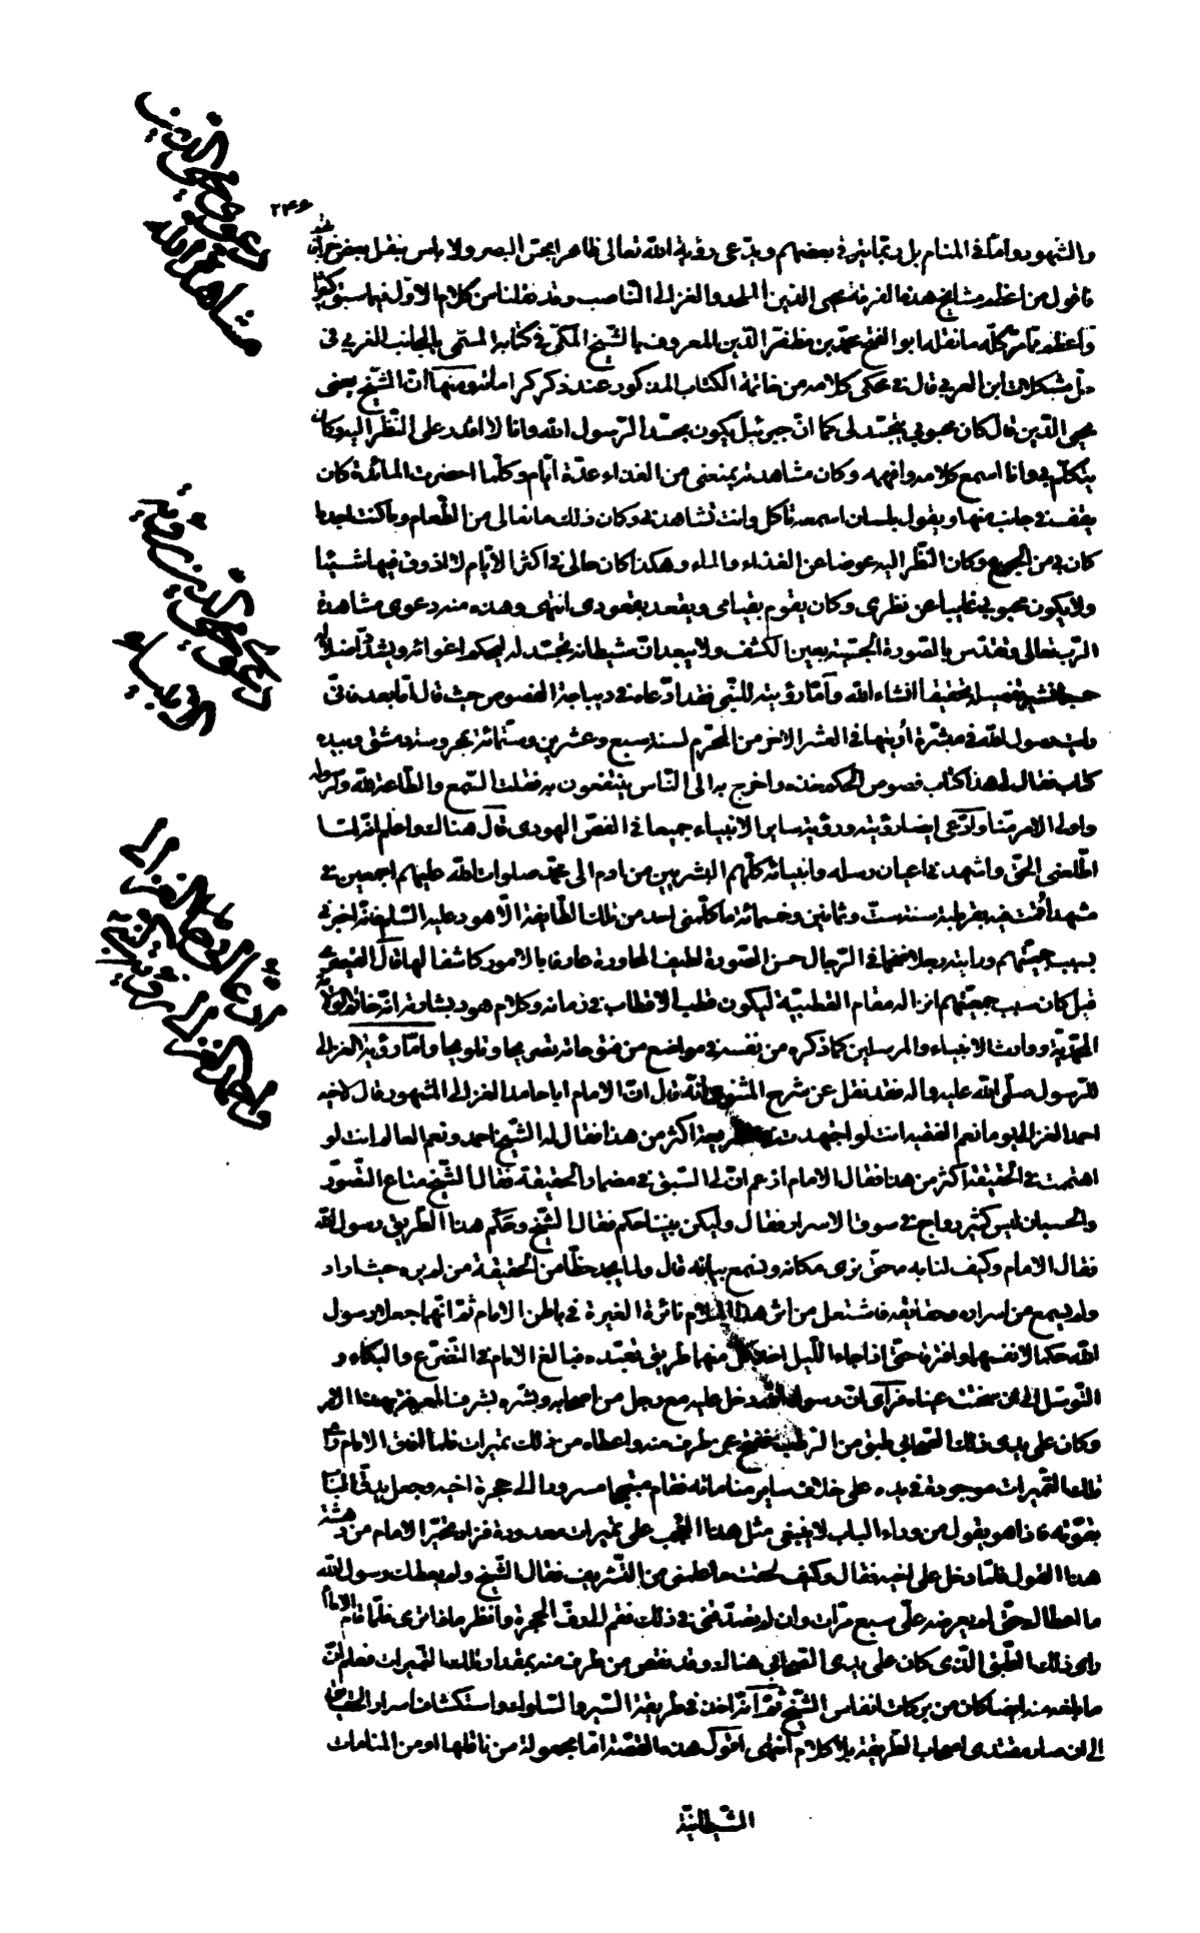 ۲۴۶
والشهود واما في المنام بل ربما يترقى بعضهم ويدعى رؤية الله تعالى ظاهرا بحس البصر ولا باس بنقل بعض
فاقول من اعظم مشايخ هذه الفرقة محيى الدين الملحد والغزالى الناصب وقد نقلنا من كلام الاول فيما سبق
واعظم مما مر كله ما نقله ابو الفتح محمد بن مظفر الدين المعروف بالشيخ المكى في كتابه المسمى بالجانب الغربي في
حل مشكلات ابن العربي قال في محكى كلامه من خاتمة الكتاب المذكور عند ذكر كراماته ومنها ان الشيخ يعنى
محيى الدين قال كان محبوبي يتجسد لى كما ان جبرئيل يكون يتجسد الرسول الله وانا لا اقدر على النظر اليه وكان
يتكلم بي وانا اسمع كلامه وافهمه وكان مشاهدته يمنعنى من الغداء عدة ايام وكلما احضرت المائدة كان
يقف في جانب منها ويقول بلسان اسمعه تأكل وانت تشاهدني وكان ذلك مانعا لى من الطعام وما كنت اجد ما
كان بي من الجوع وكان النظر اليه عوضا عن الغذاء والماء وهكذا كان حالى في اكثر الايام لا اذوق فيها شيئا
ولا يكون محبوبي غايبا عن نظرى وكان يقوم بقيامى ويقعد بقعودى انتهى وهذه منه دعوى مشاهدة
الرب تعالى وتقدس بالصورة الجسمية بعين الكشف ولا يبعد ان شيطانه تجسد له ليحكم اغوائه ويشد اضلاله
حسبما تفصيله تحقيقا انشاء الله واما رؤيته للنبي فقد ادعاه في ديباجة الفصوص حيث قال اما بعد فاني
رايت رسول الله في مبشرة أريتها في العشر الاخر من المحرم لسنة سبع وعشرين وستمائة بمحروسة دمشق وبيده
كتاب فقال لى هذا كتاب فصوص الحكم خذه واخرج به الى الناس ينتفعون به فقلت السمع والطاعة لله ولرسوله
واولى الامر منا وادعى ايضا رؤيته ورؤية ساير الانبياء جميعا في الفص الهودى قال هناك واعلم انه لما
اطلعنى الحق واشهدني اعيان رسله وانبيائه كلهم البشريين من ادم الى محمد صلوات الله عليهم اجمعين في
مشهد أقمت فيه بقرطبة سنة ست وثمانين وخمسمائة ما كلمنى احد من تلك الطايفة الا هود عليه السلام فانه اخبرني
بسبب جمعيتهم ورايته رجلا ضخما في الرجال حسن الصورة لطيف المحاورة عارفا بالامور كاشفا لها قال القيصرى
قيل كان سبب جمعيتهم انزاله مقام القطبية ليكون قطب الاقطاب في زمانه وكلام هود بشارته انه خاتم الولاية
المحمدية ووارث الانبياء والمرسلين كما ذكره من نفسه في مواضع من فتوحاته تصريحا وتلويحا واما رؤية الغزالى
للرسول صلى الله عليه واله فقد نقل عن شرح المثنوى انه قال ان الامام ابا حامد الغزالى المشهور قال لاخيه
احمد الغزالى يوما نعم الفقيه انت لو اجتهدت في الشريعة اكثر من هذا فقال له الشيخ احمد ونعم العالم انت لو
اهتممت في الحقيقة اكثر من هذا فقال الامام ازعم ان لى السبق في مضمار الحقيقة فقال الشيخ متاع التصور
والحسبان ليس كثير رواج في سوق الاسرار فقال وليكن بيننا حكم فقال الشيخ وحكم هذا الطريق رسول الله
فقال الامام وكيف لنا به حتى نرى مكانه ونسمع بيانه قال ولما يجد حظا من الحقيقة من لم يره حيث اراد
ولم يسمع من اسراره وحقايقه فاشتعل من اثر هذا الكلام نائرة الغيرة في باطن الامام ثم انهما جعلا رسول
الله حكما لانفسهما وافترقا حتى اذا جاءا الليل اخذ كل منهما طريق تعبده فبالغ الامام في التضرع والبكاء و
التوسل الى ان سخنت عيناه فرأى ان رسول الله دخل عليه مع رجل من اصحابه وبشره بشرف المعرفة بهذا الامر
وكان على يدى ذلك الصحابي طبق من الرطب ففتح عن طرف منه واعطاه من ذلك تميرات فلما افاق الامام راى
تلك التميرات موجودة في يده على خلاف ساير مناماته فقام مبتهجا مسرورا الى حجرة اخيه وجعل يدق الباب
بقوته فاذا هو يقول من وراء الباب لا ينبغى مثل هذا العجب على تميرات معدودة فزاد تحير الامام من دهشة
هذا القول فلما دخل على اخيه فقال وكيف لحقت ما لحقنى من التشريف فقال الشيخ ولم يعطك رسول الله
ما اعطاك حتى لم يعرضه على سبع مرات وان لم تصدقنى في ذلك فقم الى رف الحجرة وانظر ماذا ترى فلما قام الامام
راى ذلك الطبق الذى كان على يدى الصحابي هناك وقد نقص من طرف منه بمقدار تلك التميرات فعلم ان
ما بلغه منه ايضا كان من بركات انفاس الشيخ ثم انه اخذ في طريقة السير والسلوك واستكشاف اسرار الحقيقة
الى ان صار مقتدى اصحاب الطريقة بلا كلام انتهى اقول هذه القصة اما مجعولة من ناقلها او من المنامات
الشيطانية
دعوى محيى الدين
مشاهدة الله
دعوى محيى الدين رؤية
الانبياء
ادعاء ابو حامد الغزالى
واحمد الغزالى رؤية النبى